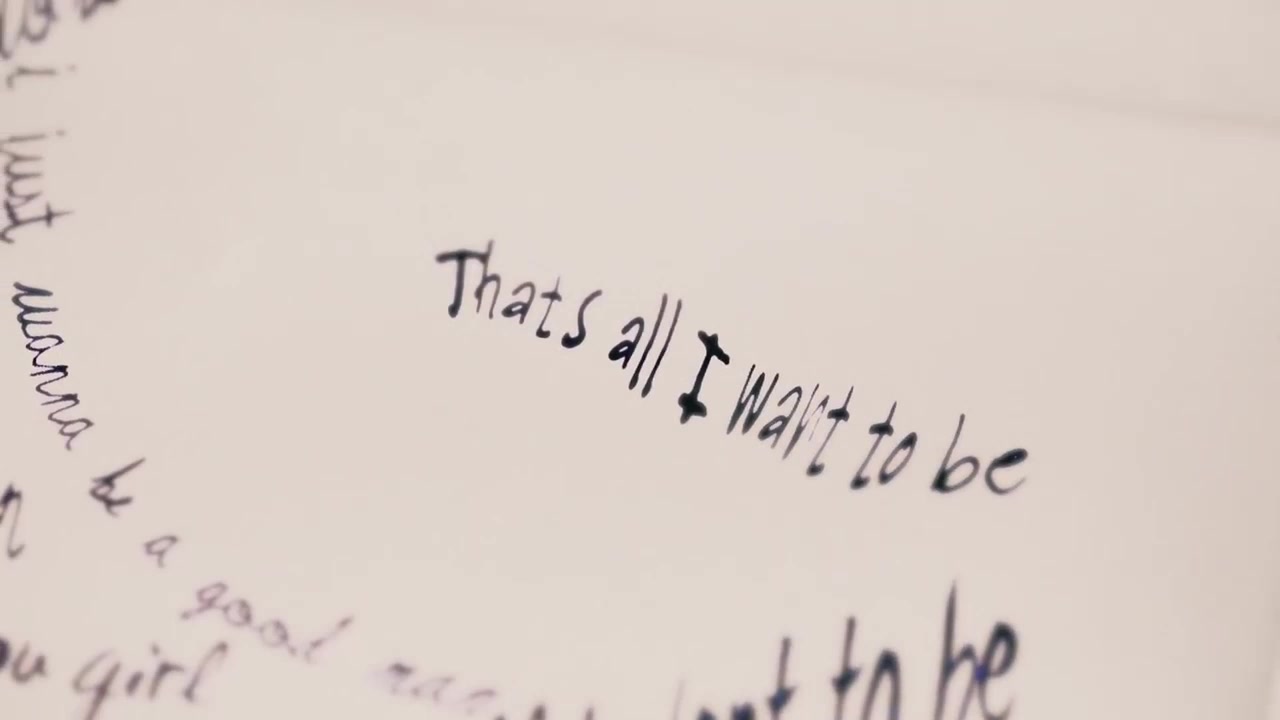 i just wanna be a good man
Thats all I want to be
girl
to be